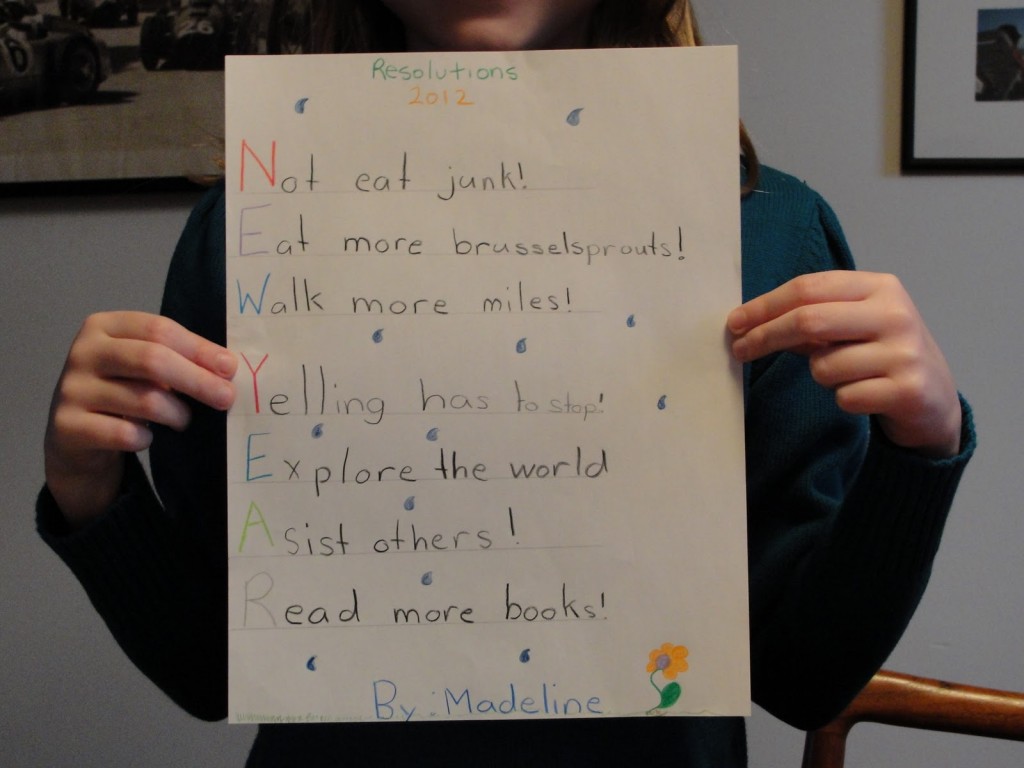 Resolutions
2012
Not eat junk!
Eat more brusselsprouts!
Walk more miles!
Yelling has to stop!
Explore the world
Asist others!
Read more books!
By: Madeline
6